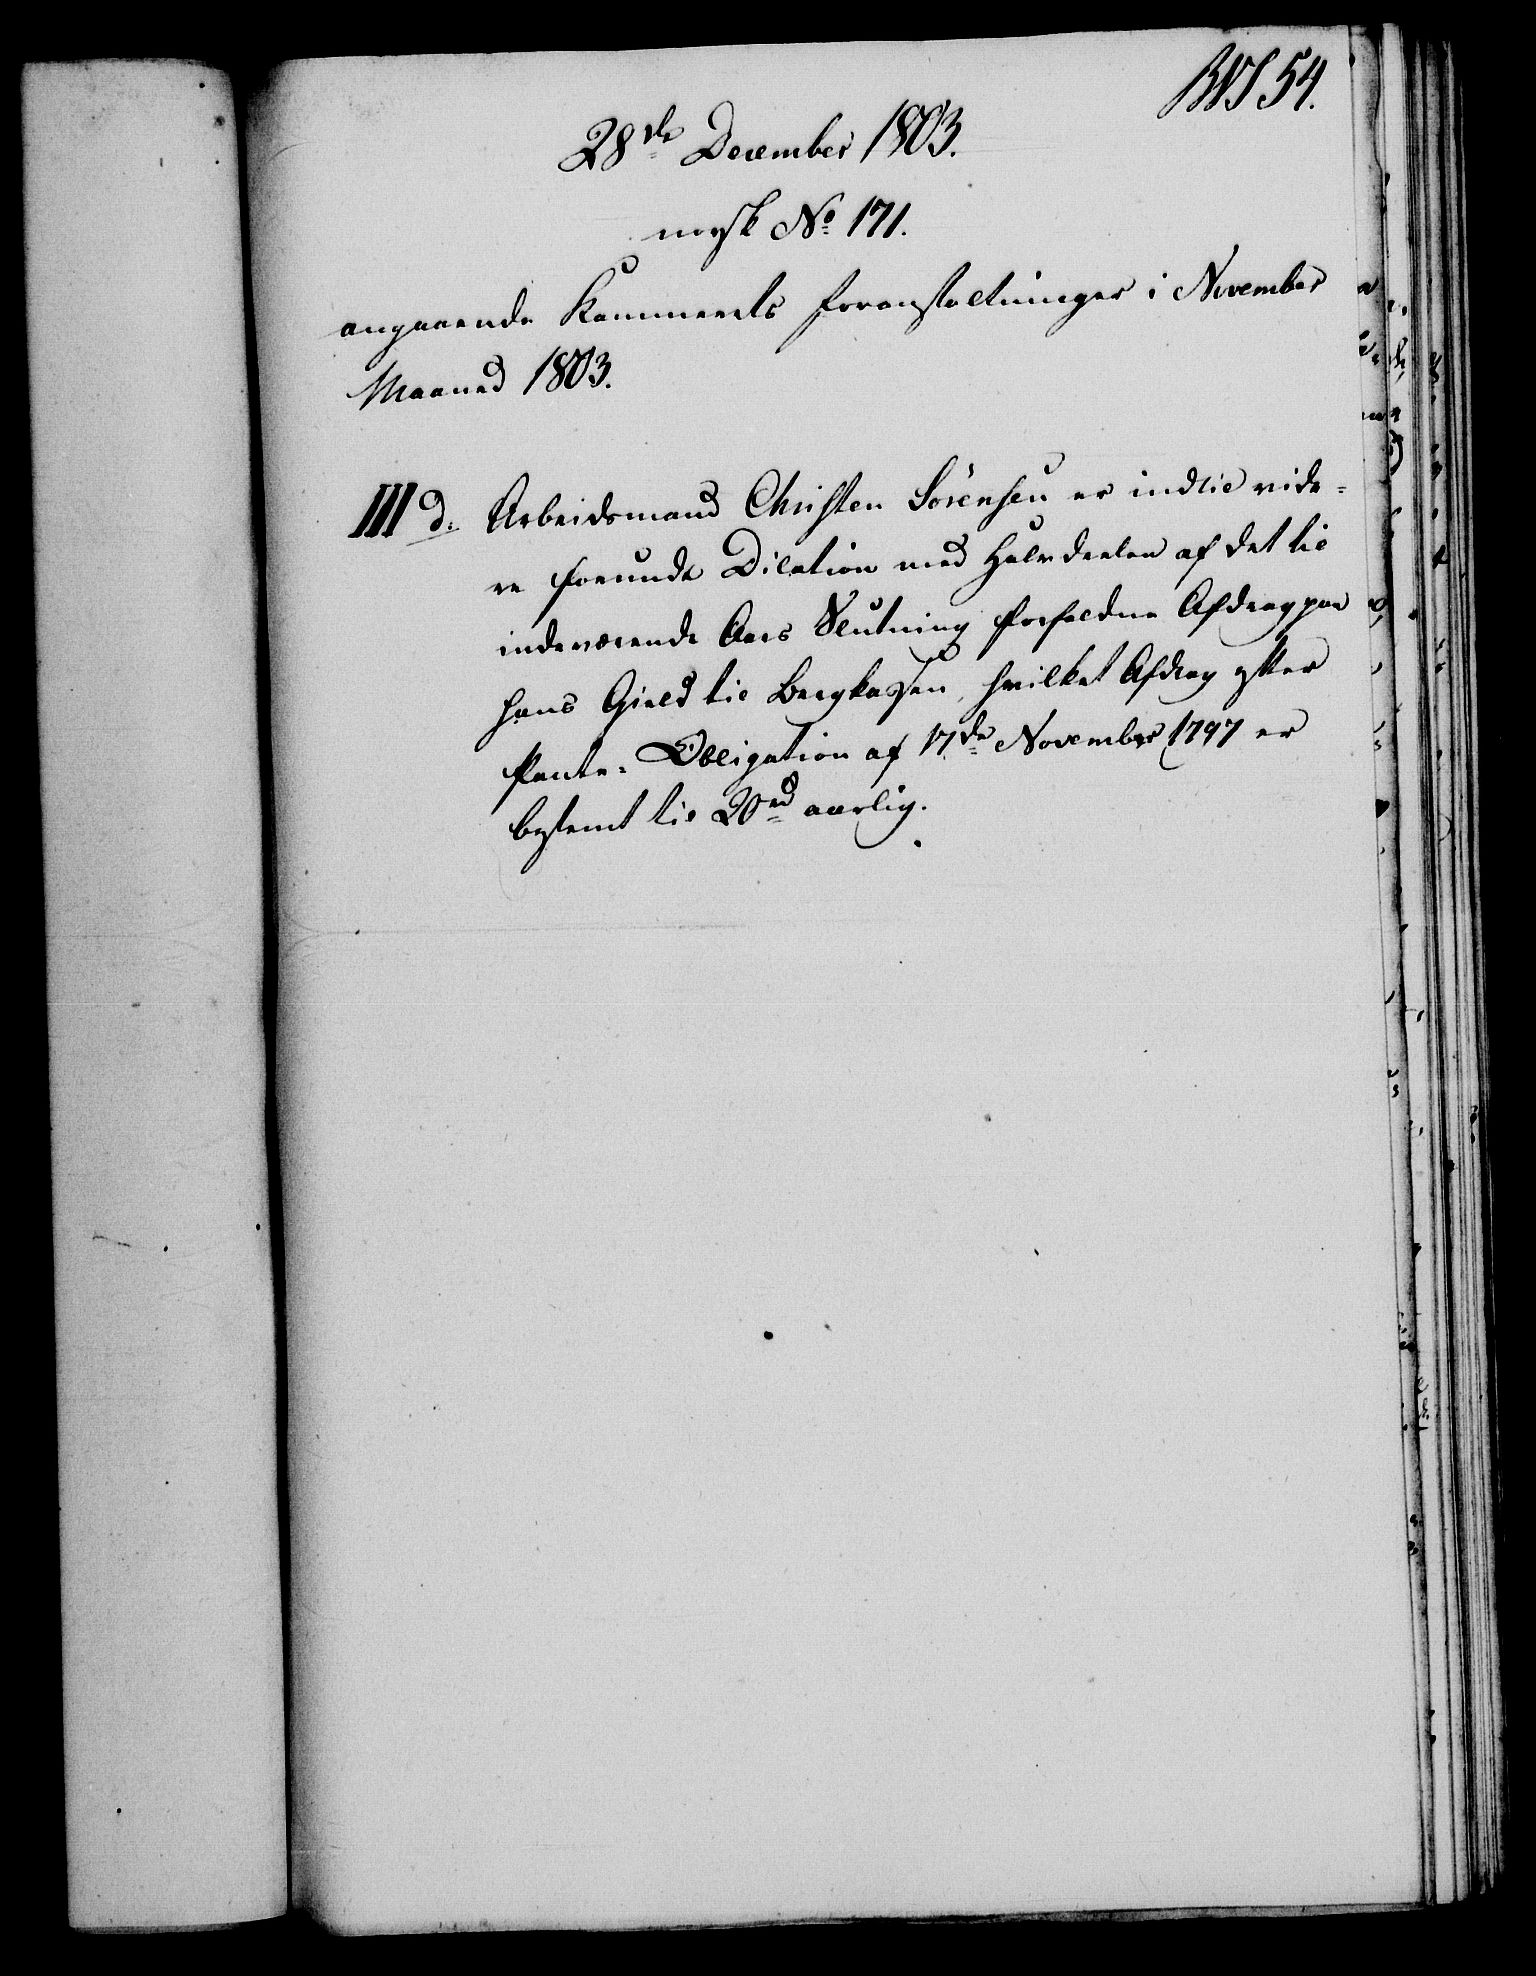 BVS 54.
28de December 1803.
norsk No 171.
angaaende Kammerets foranstaltninger i November
Maaned 1803.
III d. Arbeidsmand Christen Sörensen er indtil vide-
re forundt Dilation med Halvdeelen af det til
indeværende Aars Slutning forfaldne Afdrag paa
hans Gield til Bergkassen, hvilket Afdrag efter
Pante-Obligation af 17de November 1797 er
bestemt til 20rd aarlig.